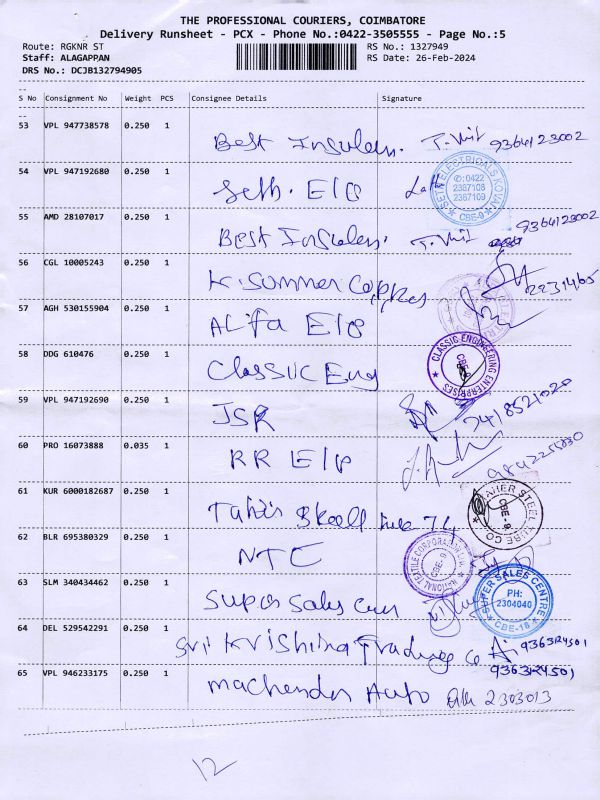 THE PROFESSIONAL COURIERS, COIMBATORE
Delivery Runsheet - PCX - Phone No.:0422-3505555 - Page No.:5
Route: RGKNR ST RS No.: 1327949
Staff: ALAGAPPAN RS Date: 26-Feb-2024
DRS No.: DCJB132794905
S No Consignment No Weight PCS Consignee Details Signature
53 VPL 947738578 0.250 1 Best 9364123002
54 VPL 947192680 0.250 1 Seth. E/P
SETH ELECTRICALS KOVAI
✆:0422
2387108
2387109
CBE-9
55 AMD 28107017 0.250 1 Best 9364123002
56 CGL 10005243 0.250 1 K. 2231465
57 AGH 530155904 0.250 1 Alifa E/P
58 DDG 610476 0.250 1 Classic Eng
CLASSIC ENGINEERING ENTERPRISES
CBE-9
59 VPL 947192690 0.250 1 JSR 7418521020
60 PRO 16073888 0.035 1 RR E/P
61 KUR 6000182687 0.250 1
TAHER STEEL TUBE CO.
CBE-9
62 BLR 695380329 0.250 1 NTC
NATIONAL TEXTILE CORPORATION
CBE-9
63 SLM 340434462 0.250 1 Super Sales
SUPER SALES CENTRE
PH:
2304040
CBE-18
64 DEL 529542291 0.250 1 Sri Krishna Trading Co 9363124501
9363124501
65 VPL 946233175 0.250 1 Auto 2303013
12